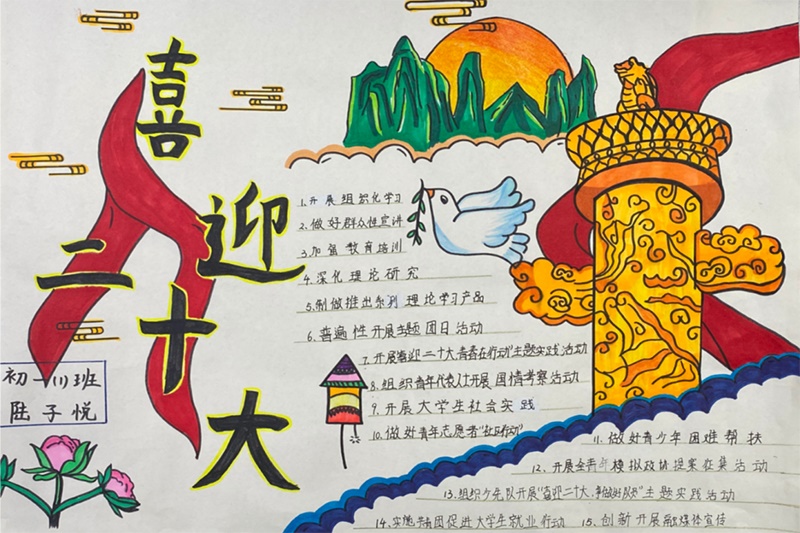 喜迎
二十大
初一(1)班
陆子悦
1.开展组织化学习
2.做好群众性宣讲
3.加强教育培训
4.深化理论研究
5.制做推出系列理论学习产品
6.普遍性开展主题团日活动
7.开展喜迎二十大青春在行动"主题实践活动
8.组织青年代表人士开展国情考察活动
9.开展大学生社会实践
10.做好青年志愿者"社区行动"
11.做好青少年困难帮扶
12.开展全青年模拟政协提案征集活动
13.组织少先队开展"喜迎二十大,争做好队员"主题实践活动
14.实施共青团促进大学生就业行动
15.创新开展融媒体宣传